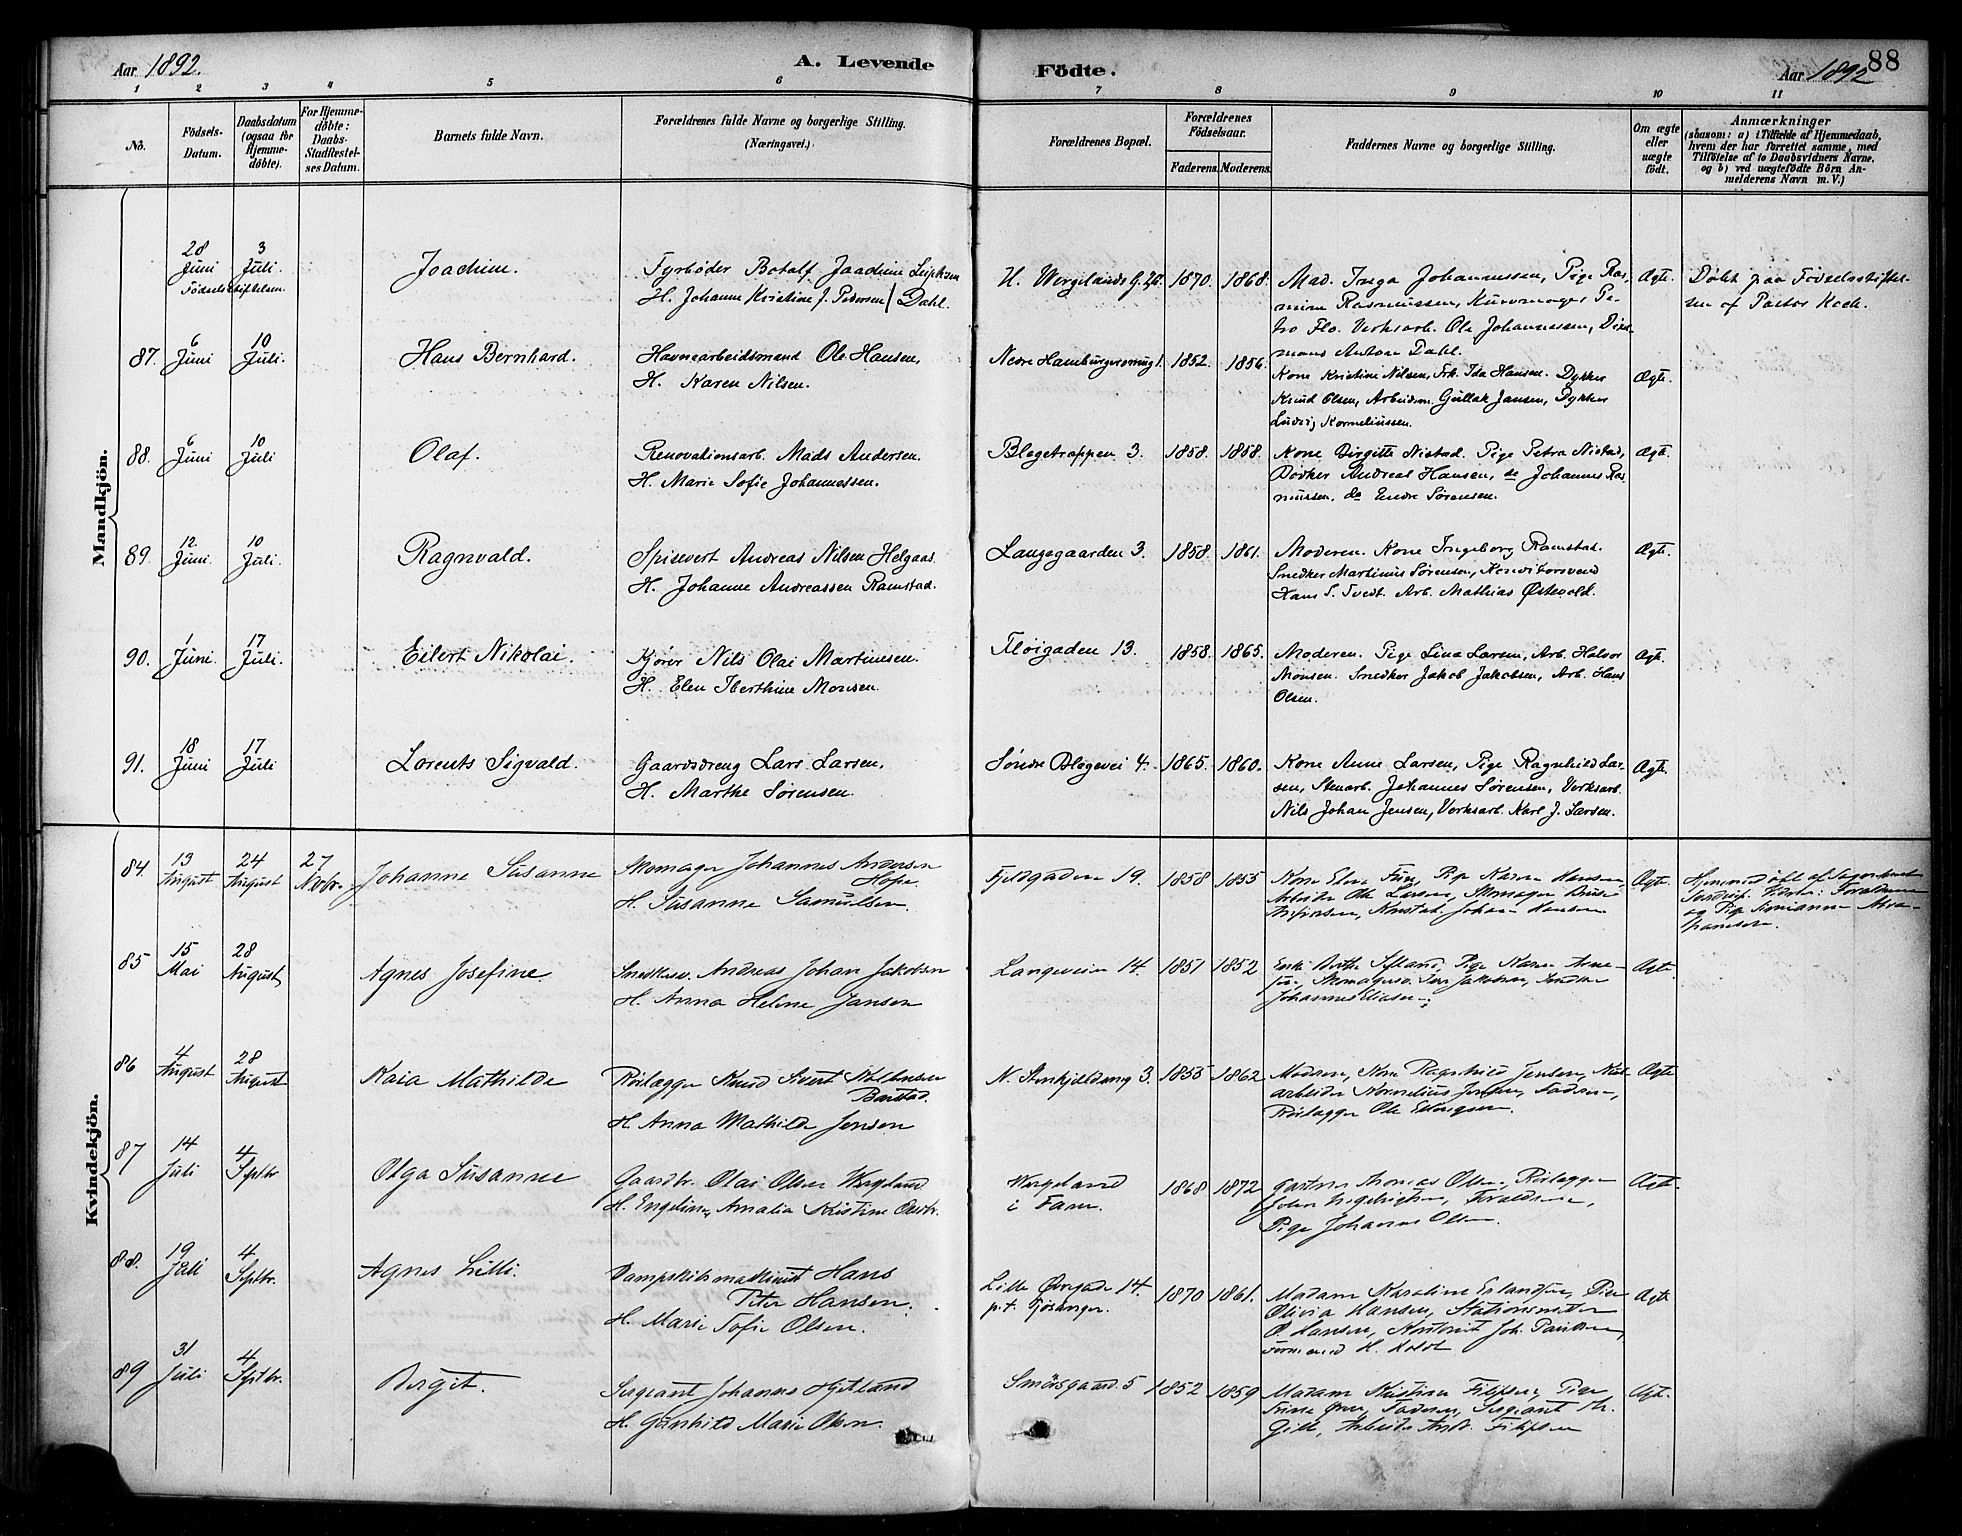 Aar 1892.
A. Levende
Födte.
Aar 1892
88
1 2 3 4 5 6 7 8 9 10 11
No.
Födsels-Datum.
Daabsdatum (ogsaa för Hjemmedöbte).
For Hjemmedöbte: Daabs-Stadfæstelses Datum.
Barnets fulde Navn.
Forældrenes fulde Navne og borgerlige Stilling. (Næringsvei.)
Forældrenes Bopæl.
Forældrenes Födselsaar.
Faderens. Moderens.
Faddernes Navne og borgerlige Stilling.
Om ægte eller uægte födt.
Anmærkninger
(saasom: a) i Tilfælde af Hjemmedaab, hvem der har forrettet samme, med Tilföielse af to Daabsvidners Navne, og b) ved uægtefödte Börn Anmelderens Navn m. V.)
Mandkjön.
28 Juni Fødselsstiftelsen
3 Juli.
Joachim.
Fyrbøder Botolf Joachim
H. Johanne Kristine J. Pedersen Dahl.
H. Wergelands G.
1870. 1868.
Mad. Inga Johannessen, Pige Ras-
mine Rasmussen, Ole Johannessen,
Anton Dahl.
Ægte.
Døbt paa Fødselsstiftel-
sen af Pastor Koch.
87. 6 Juni 10 Juli.
Hans Bernhard.
Havnearbeidsmand Ole Hansen,
H. Karen Nilsen.
Nedre Hamburgersmug 1.
1852. 1856.
Kone Kristine Nilsen, Frk. Ida Hansen. Dykker
Knud Olsen, Arbeidsm. Gullak Jansen, Dykker
Ludvig Korneliussen.
Ægte.
88. 6 Juni 10 Juli
Olaf.
Renovationsarb. Mads Andersen.
H. Marie Sofie Johannessen.
Blegetrappen 3.
1858. 1858.
Kone Birgitte Nistad. Pige Petra Nistad,
Bødker Andreas Hansen, do Johannes Ras-
mussen, do Endre Sørensen.
Ægt.
89. 12 Juni. 10 Juli.
Ragnvald.
Spisevert Andreas Nilsen Helgaas.
H. Johanne Andreassen Ramstad.
Langegaarden 3.
1858. 1861.
Moderen. Kone Ingeborg Ramstad.
Snedker Martinus Sørensen, Konditorsvend
Hans S. Tvedt. Arb. Mathias Østevold.
Ægte.
90. 1 Juni. 17 Juli.
Eilert Nikolai.
Kjører Nils Olai Martinsen.
H. Elen Iberthine Monsen.
Fløigaden 13.
1858. 1865.
Moderen. Pige Lina Larsen, Arb. Halvor
Monsen. Snedker Jakob Jakobsen, Arb. Hans
Olsen.
Ægt.
91. 18 Juni 17 Juli
Lorents Sigvald.
Gaardsdreng Lars Larsen,
H. Marthe Sørensen.
Søndre Blegevei 4.
1865. 1860.
Kone Anne Larsen, Pige Ragnhild Lar-
sen, Stenarb. Johannes Sørensen, Verksarb.
Nils Johan Jensen, Verksarb. Karl J. Larsen.
Ægte.
Kvindekjön.
84. 13 August 24 August 27 Novbr.
Johanne Susanne
Skomager Johannes Andersen
H. Susanne Samuelsen.
Fjeldgaden 19.
1858 1855
Ægte.
85 15 Mai 28 August
Agnes Josefine.
Snedkersv. Andreas Johan Jakobsen
H. Anna Helene Jansen
Langeveien 14.
1851 1852
Ægte
86 4 August 28 August
Kaia Mathilde
Rørlægger Knud Sivert
H. Anna Mathilde Jensen
N. Stenkjeldersmug 3.
1855 1862
Moderen, Kone Ragnhild Jensen,
arbeider Kornelius Jensen, Faderen,
Rørlægger Ole
Ægte
87 14 Juli 4 Septbr
Olga Susanne
Gaardbr. Olai Olsen Wergeland
H. Engeline Amalia Kristine
Wergeland
i Fane.
1868 1872
Olsen, Rørlægger
Forældrene,
Pige Johanne Olsen.
Ægte.
88. 19 Juli 4 Septbr.
Agnes Lilli.
Dampskibsmaskinist Hans
Peter Hansen.
H. Marie Sofie Olsen.
Lille Øvregade 14.
p.t. Fjøsanger.
1870 1861.
Madam Karoline Erlandsen, Pige
Olivia Hansen, Stationsmester
O. Hansen,
Ægte
89 31 Juli 4 Septbr.
Bergit.
Sergeant Johannes Hjetland
H. Gunhild Marie Olsen.
Smørsgaard. 5
1852 1859
Madam Kristine Filipsen, Pige
Faderen, Sergeant
Filipsen
Ægt.